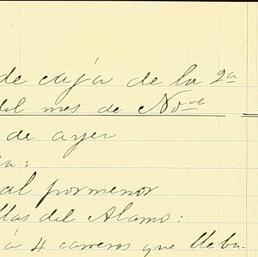 de caja de la 2ª
del mes de Nove
de ayer
al pormenor
llas del Alamo:
á 4 carreros que lleba-